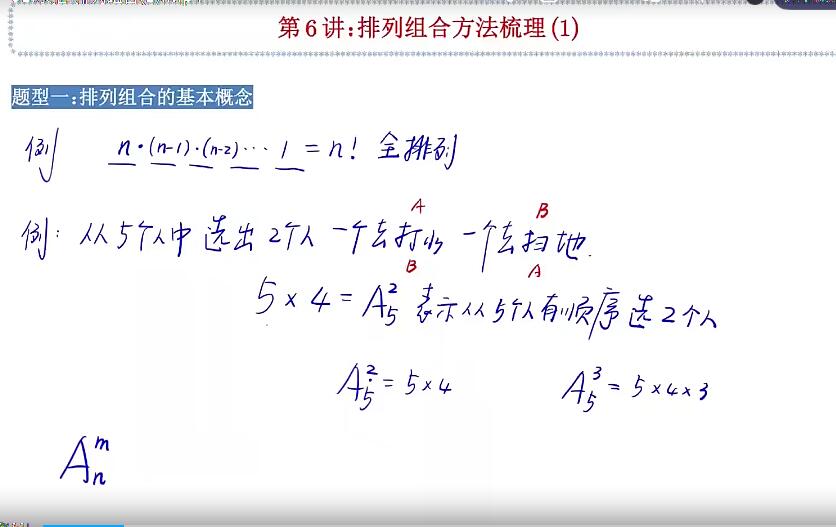 第6讲:排列组合方法梳理(1)
题型一:排列组合的基本概念
例 n·(n-1)·(n-2)…1=n! 全排列
A B
例:从5个人中选出2个人一个去打水一个去扫地.
B A
5×4=A₅² 表示从5个人有顺序选2个人
A₅²=5×4 A₅³=5×4×3
Aₙᵐ